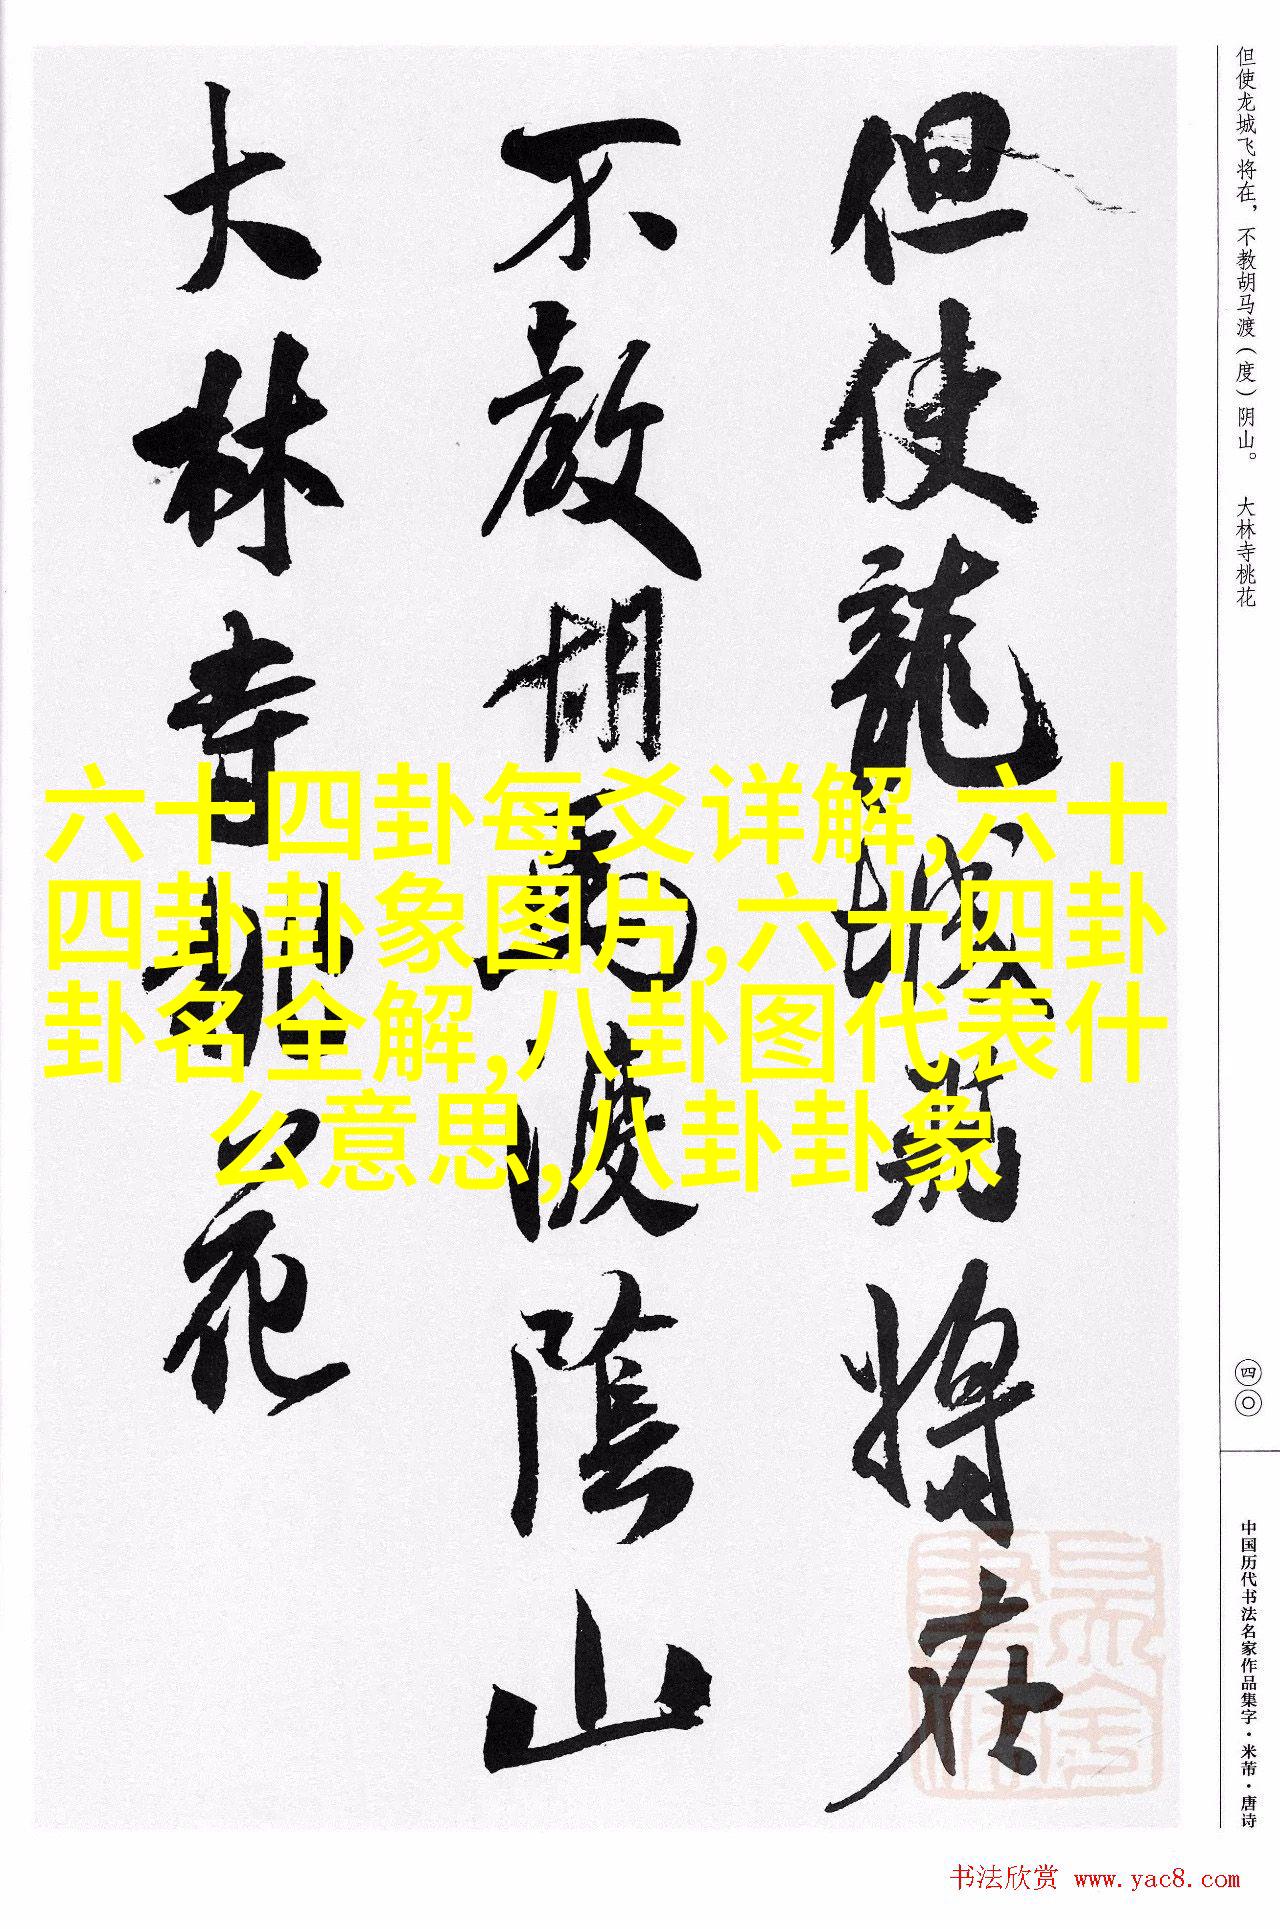 但使龙城飞将在，不教胡马渡（度）阴山。　大林寺桃花
四〇
中国历代书法名家作品集字·米芾·唐诗
但使龍城飛將在
不教胡馬渡陰山
大林寺桃花
六十四卦每爻详解,六十
四卦卦象图片,六十四卦
卦名全解,八卦图代表什
么意思,八卦卦象
书法欣赏 www.yac8.com